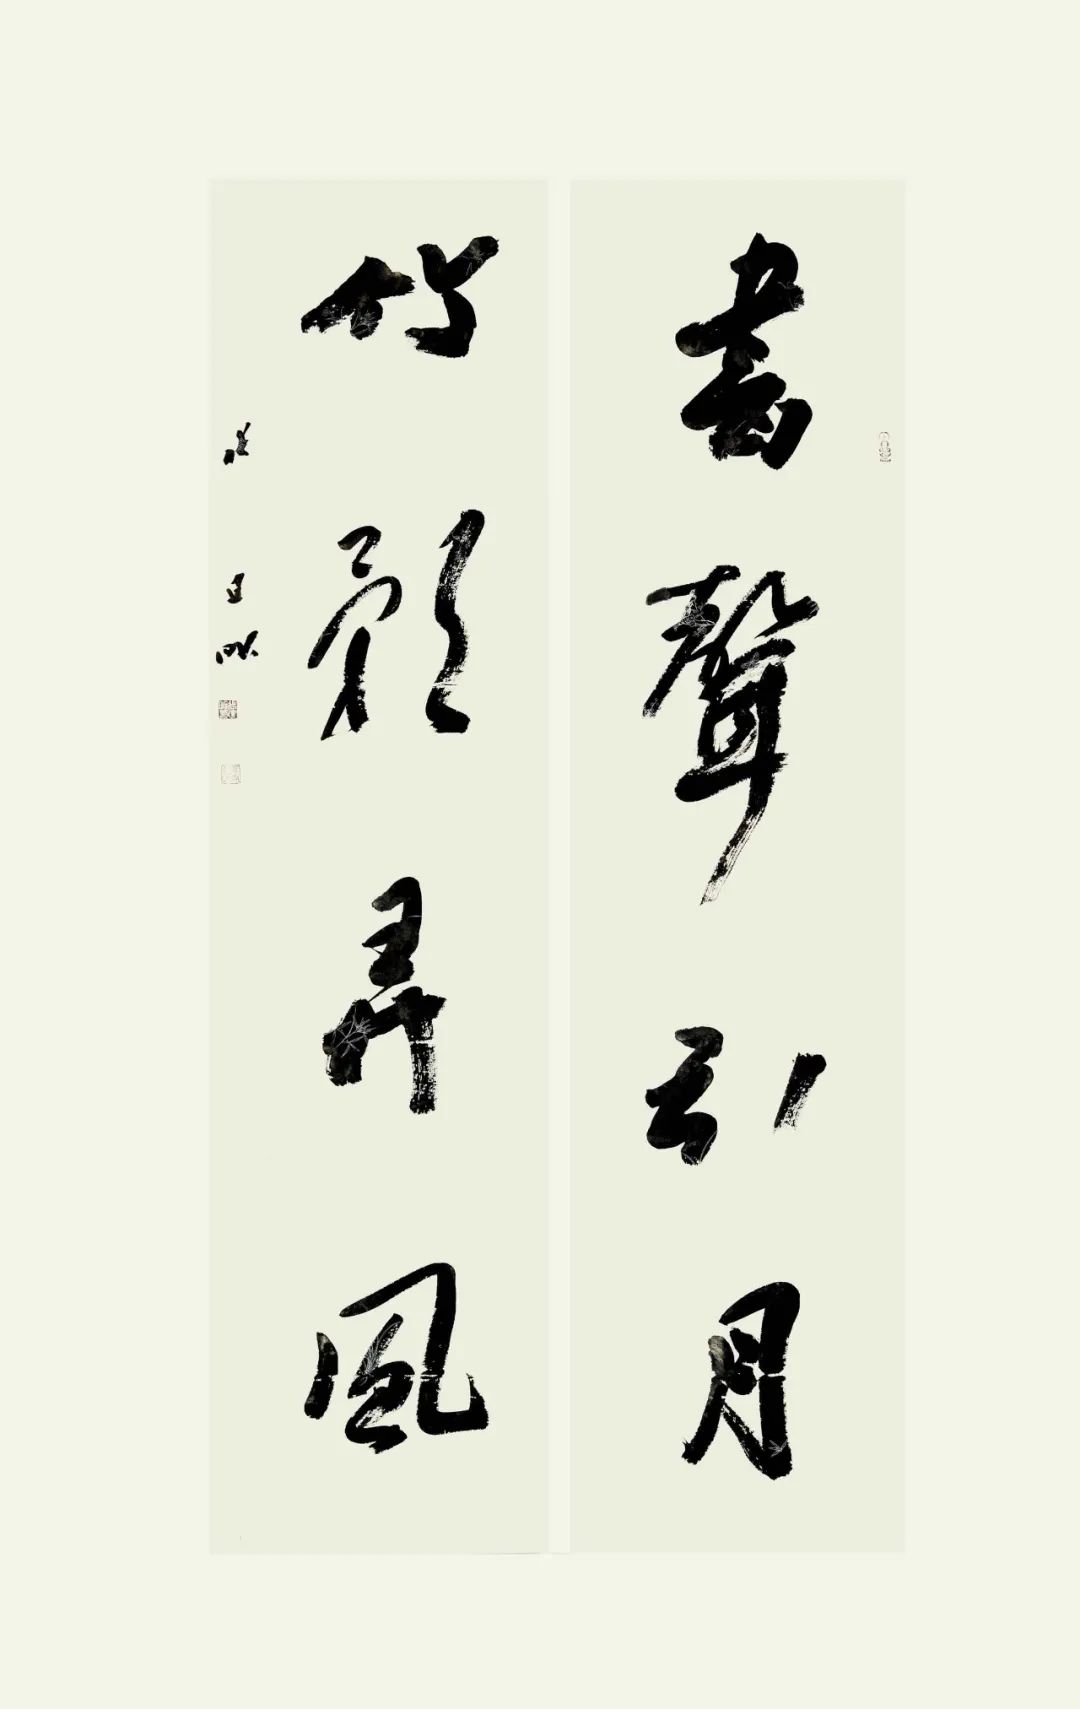 書聲引月
竹影弄風